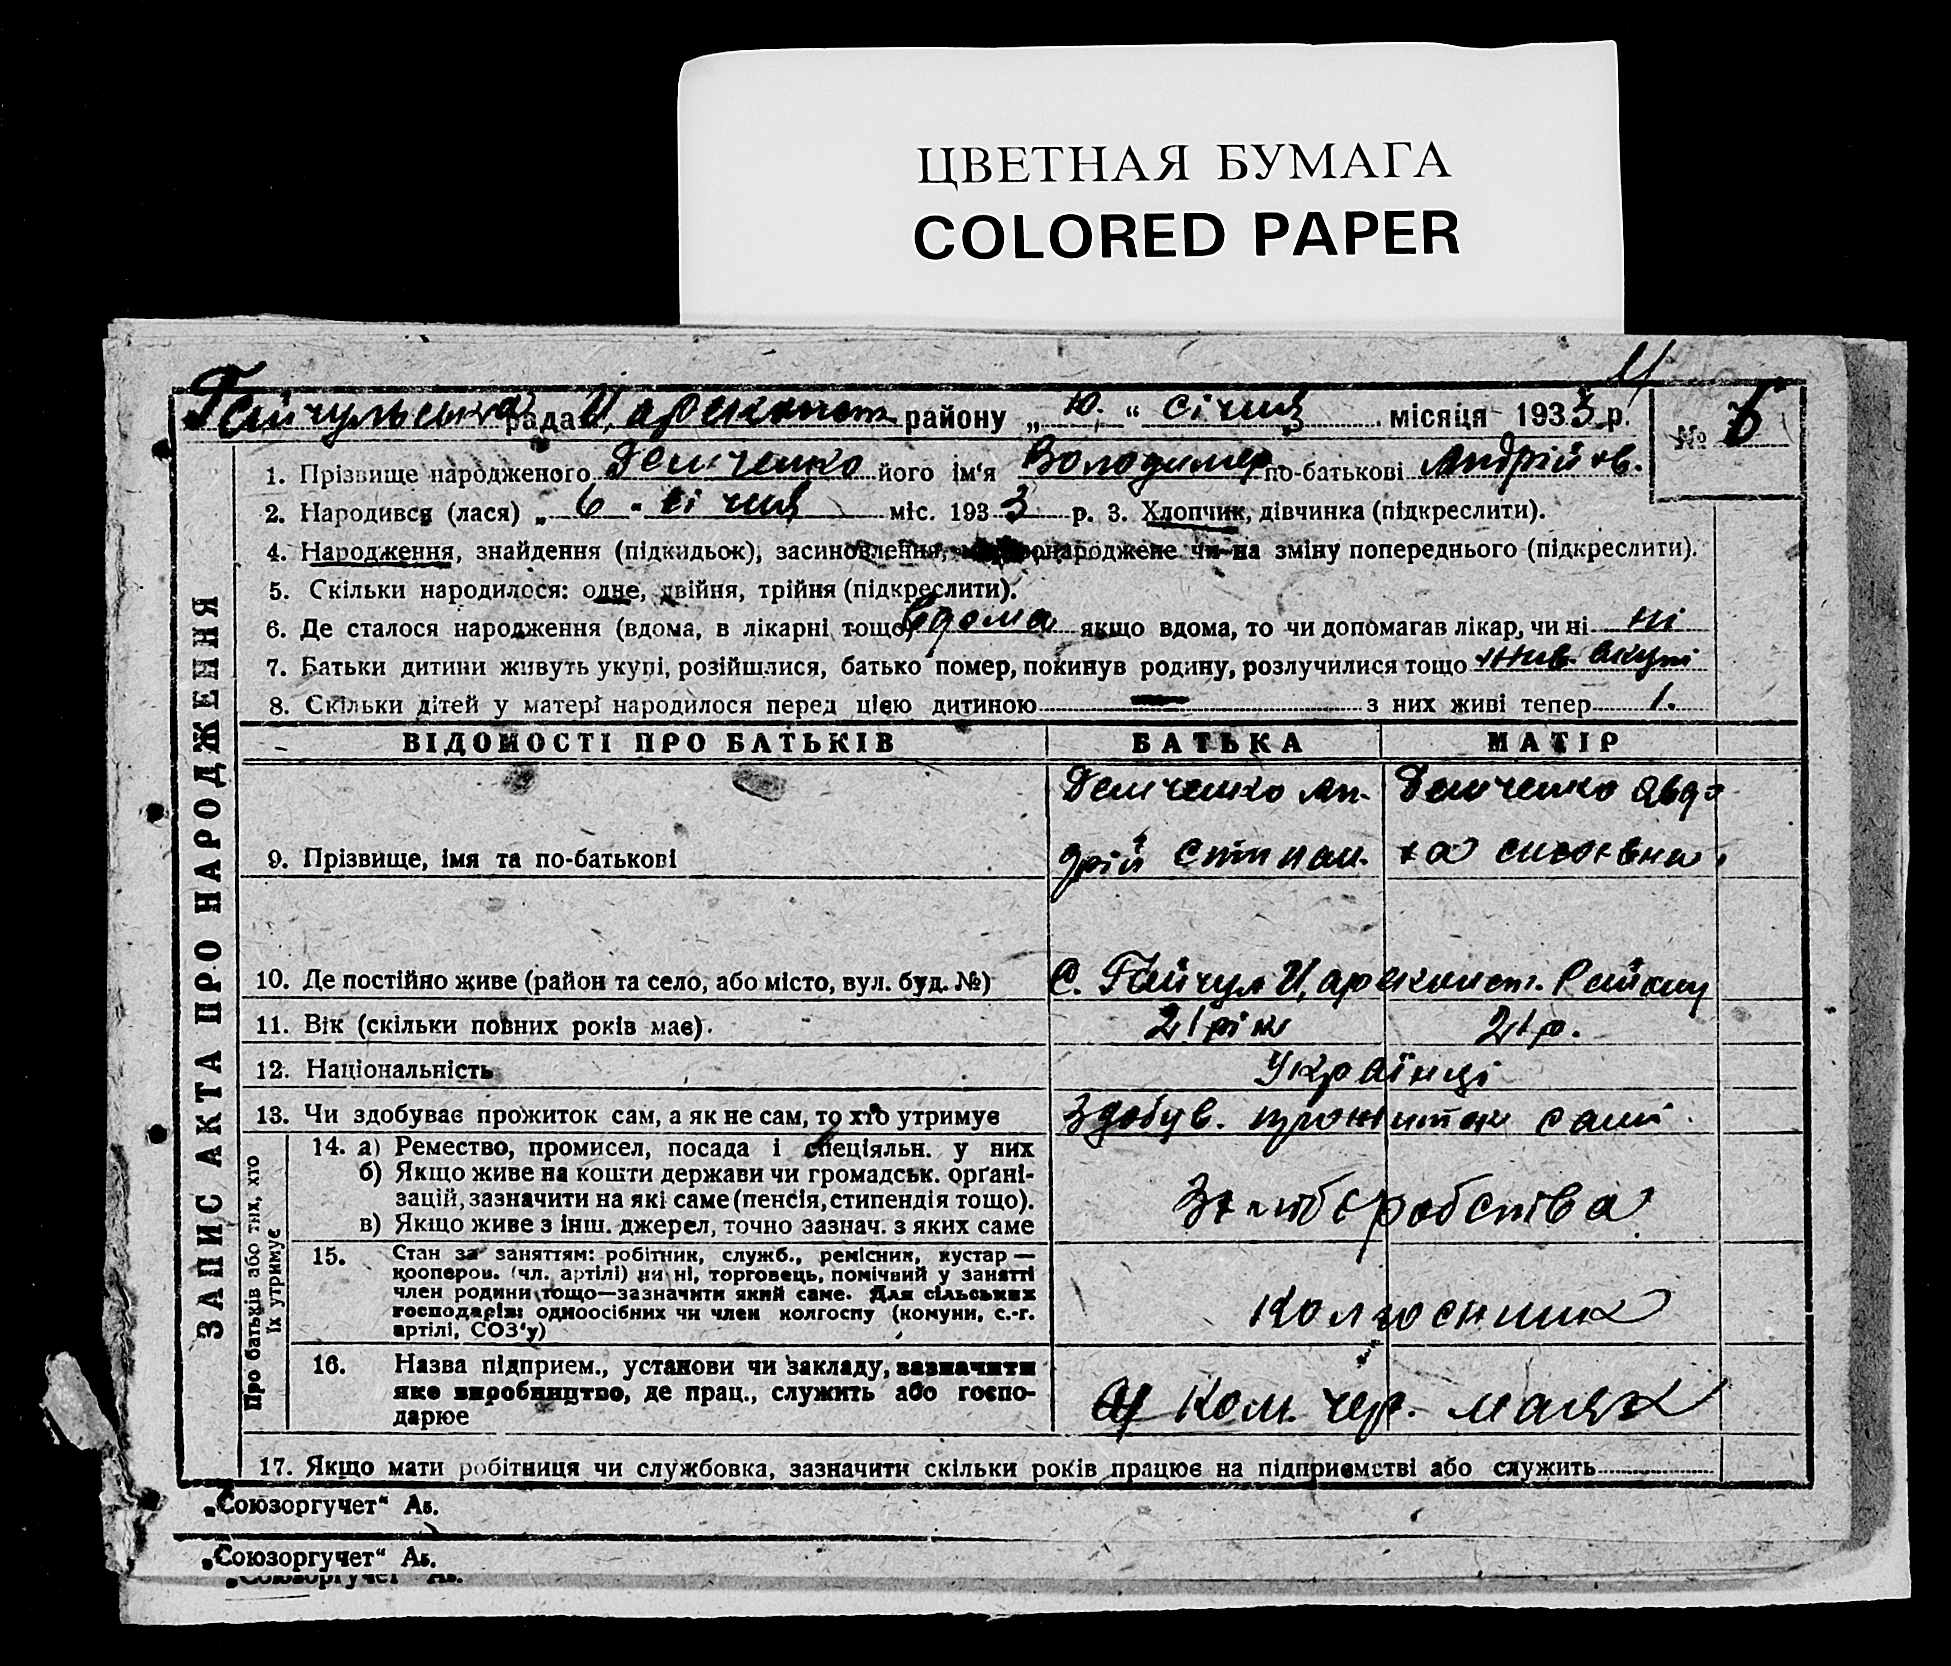 ЦВЕТНАЯ БУМАГА
COLORED PAPER
Гайчульська рада Царекопст районy „ 10. “ січня місяця 1933 р.
№ 6
1. Прізвище народженого Демченко його ім'я Володимер по-батькові Андрійов.
2. Народився (лася) „ 6 " січня міс. 1933 р. 3. Хлопчик, дівчинка (підкреслити).
4. Народження, знайдення (підкидьок), засиновлення, чи на зміну попереднього (підкреслити).
5. Скільки народилося: одне, двійня, трійня (підкреслити).
6. Де сталося народження (вдома, в лікарні тощо) вдома якщо вдома, то чи допомагав лікар, чи ні ні
7. Батьки дитини живуть укупі, розійшлися, батько помер, покинув родину, розлучилися тощо жив. вкупі
8. Скільки дітей у матері народилося перед цією дитиною — з них живі тепер 1.
ЗАПИС АКТА ПРО НАРОДЖЕННЯ
ВІДОМОСТІ ПРО БАТЬКІВ БАТЬКА МАТІР
Демченко Ан- Демченко Явдо
9. Прізвище, імя та по-батькові дрій Степан. ха
10. Де постійно живе (район та село, або місто, вул. буд. №) С. Гайчул Царекопст. Району
11. Вік (скільки повних років має). 21 рік 21 р.
12. Національність Українці
13. Чи здобуває прожиток сам, а як не сам, то хто утримує Здобув. прожиток сами
Про батьків або тих, хто їх утримує
14. а) Ремество, промисел, посада і спеціяльн. у них
б) Якщо живе на кошти держави чи громадськ. орґані-
зацій, зазначити на які саме (пенсія, стипендія тощо).
в) Якщо живе з інш. джерел, точно зазнач. з яких саме
15. Стан за заняттям: робітник, служб., ремісник, кустар —
кооперов. (чл. артілі) чи ні, торговець, помічний у занятті
член родини тощо—зазначити який саме. Для сільських
господарів: одноосібних чи член колгоспу (комуни, с.-г.
артілі, СОЗ'у)
колгосник
16. Назва підприєм., установи чи закладу, зазначити
яке виробництво, де прац., служить або госпо-
дарює
Ком. чер. маяк
17. Якщо мати робітниця чи службовка, зазначити скільки років працює на підприємстві або служить
„Союзоргучет“ Аб.
„Союзоргучет“ Аб.
„Союзоргучет“ Аб.